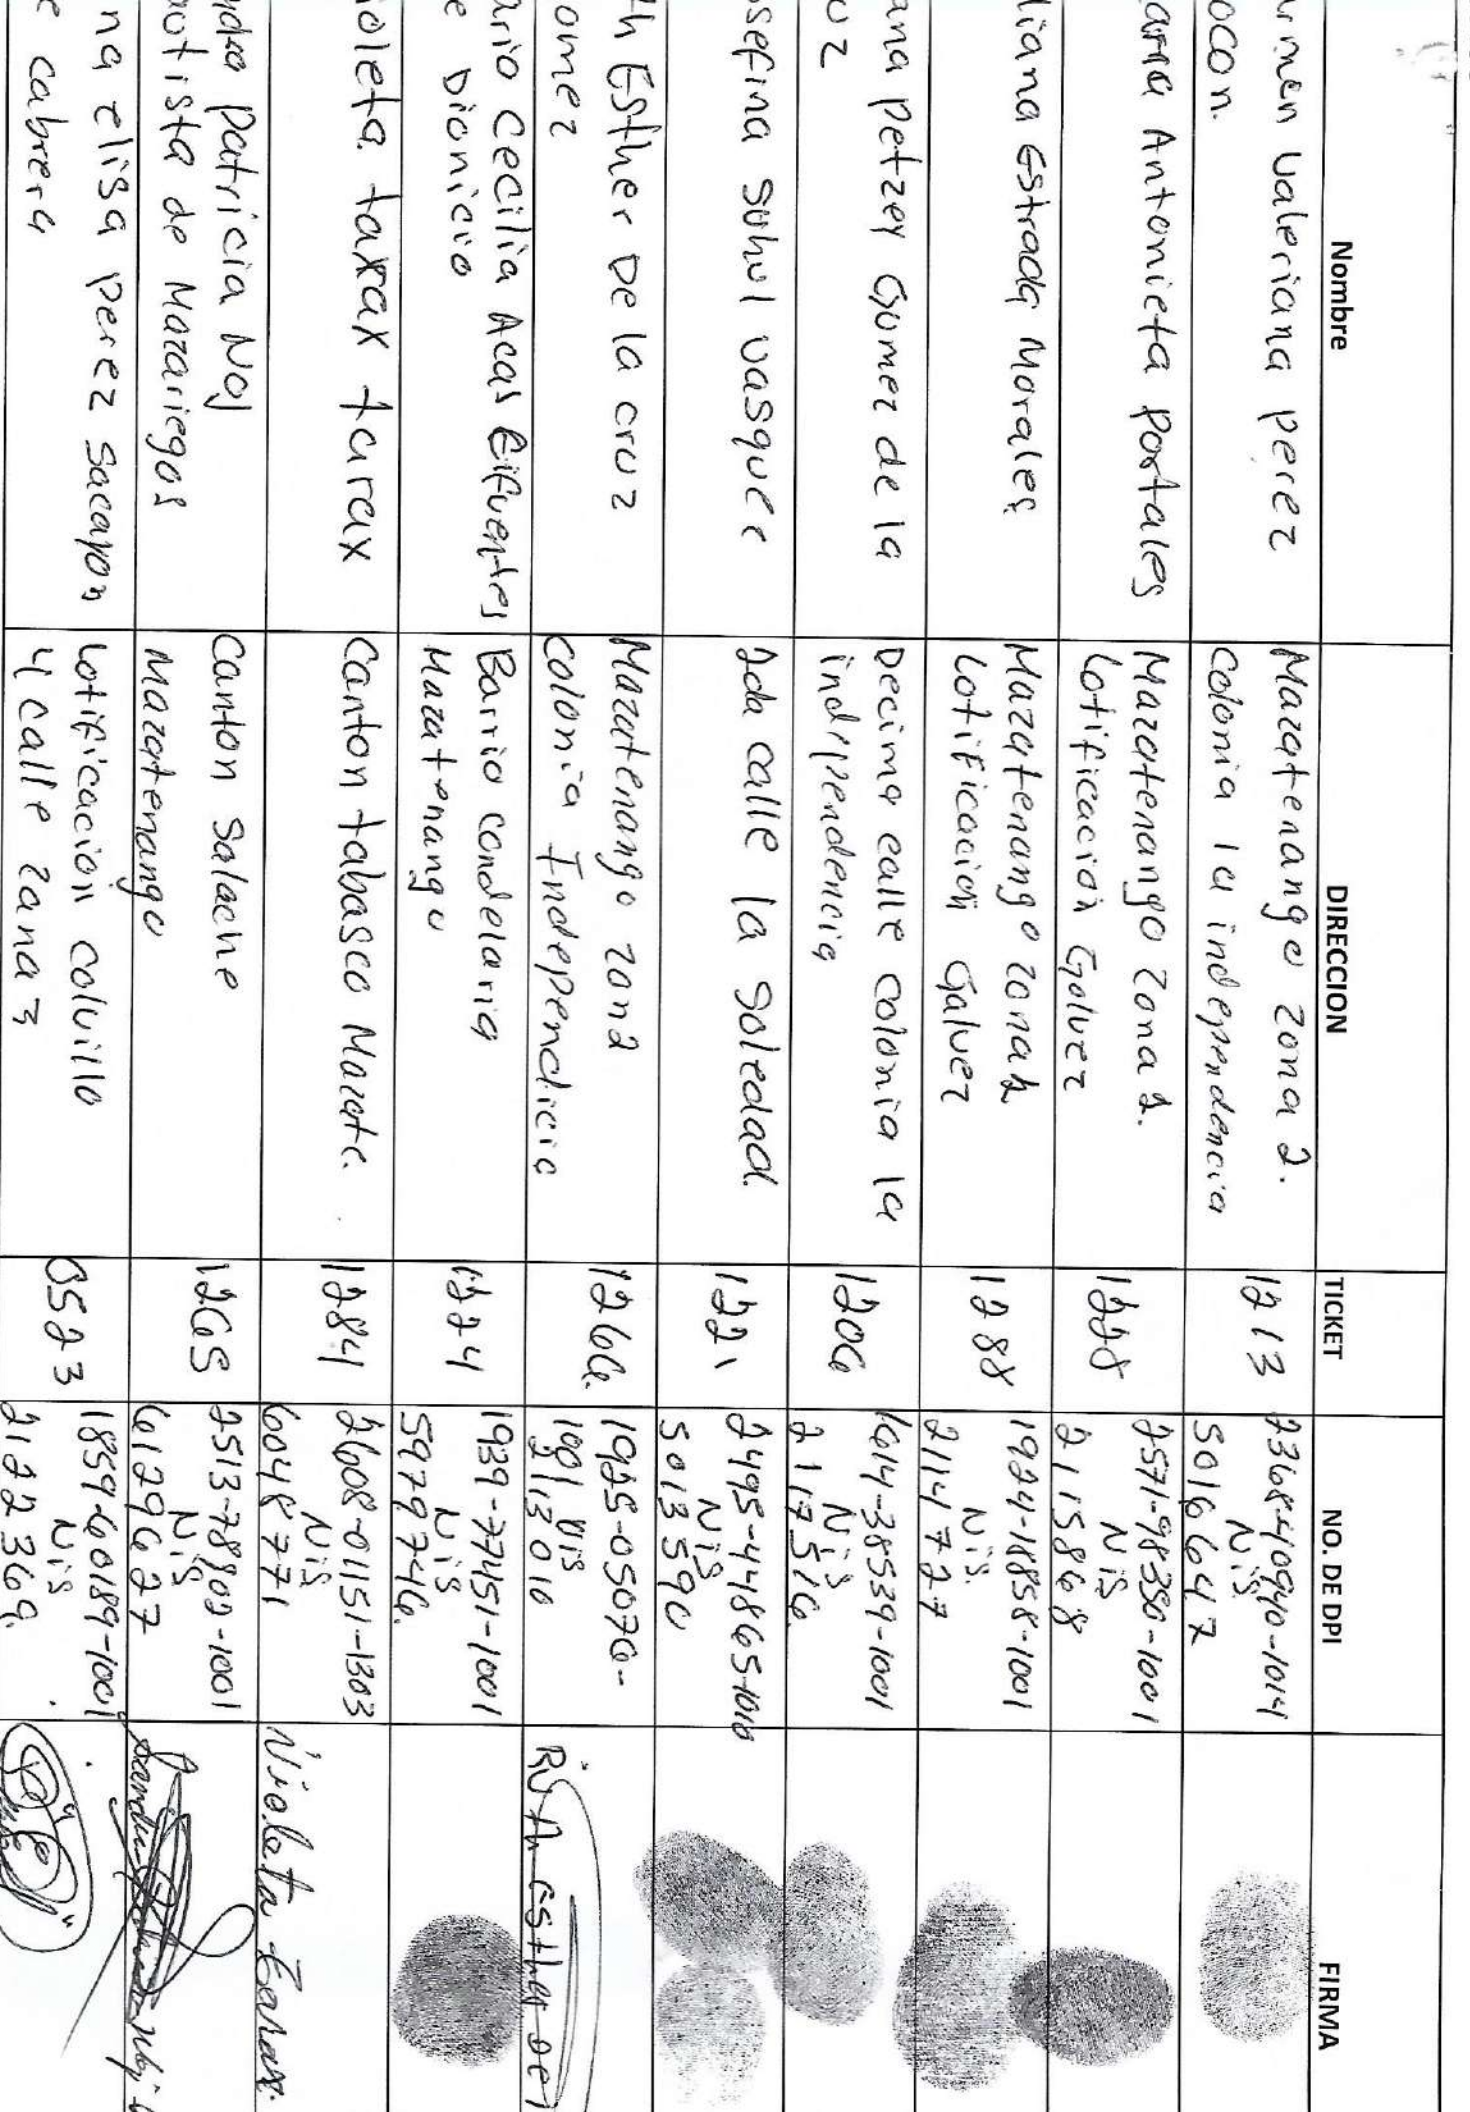 Nombre DIRECCION TICKET NO. DE DPI FIRMA
rmen Valeriana perez
ocon.
Mazatenango zona 2.
Colonia la independencia
1213
2368-40940-1014
Nis
5016647
arra Antonieta Portales
Mazatenango zona 1.
Lotificación Galvez
1228
2571-98350-1001
Nis
2115868
liana Estrada Morales
Mazatenango zona 1
Lotificación Galvez
1288
1924-18858-1001
Nis.
2114727
ana Petzey Gomez de la
uz
Decima calle colonia la
independencia
1206
1614-38539-1001
Nis
2117516
sefina Suhul Vasquez
2da calle la Soledad.
1221
2495-44865-1010
Nis
5013590
h Esther De la cruz
omez
Mazatenango zon2
colonia Independicia
1266.
1925-05076-
1001 Nis
2113010
ario Cecilia Acas Cifuentes
e Dionicio
Barrio candelaria
Mazatenango
1224
1939-77451-1001
Nis
5979746.
Ruth Esther De l
ioleta taxax taxax
Canton tabasco Mazate.
1284
2608-01151-1303
Nis
6048771
Violeta Taxax.
ndra Patricia Noj
autista de Mazariegos
Canton Salache
Mazatenango
1265
2513-78809-1001
Nis
6129627
na elisa Perez Sacayon
e cabrera
Lotificación coluillo
4 calle zana 3
0523
1859-60189-1001
Nis
2122369.